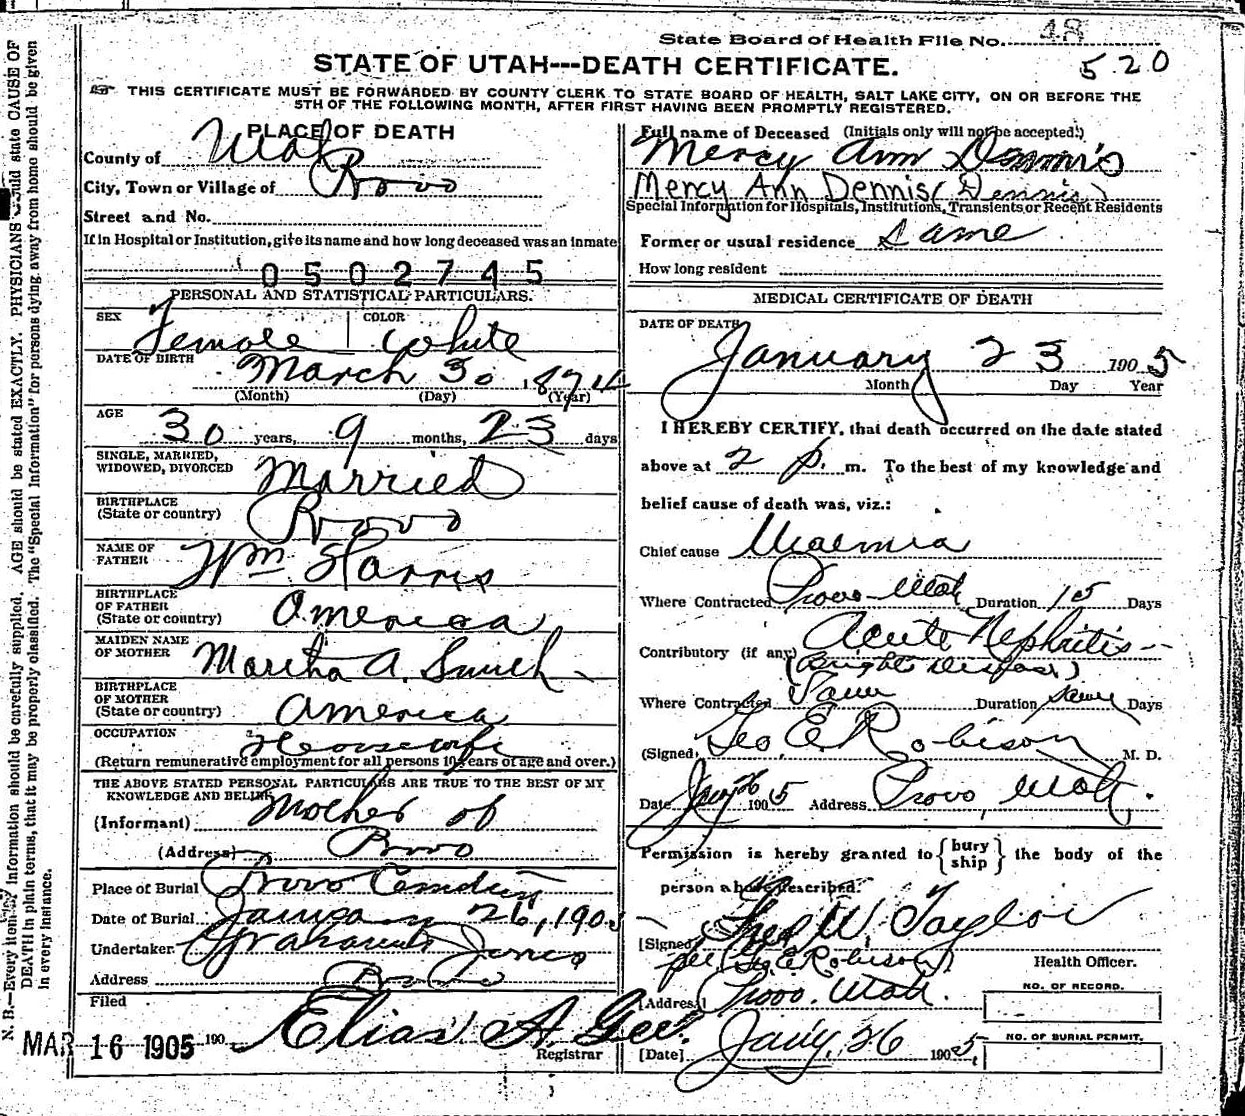 State Board of Health File No. 48
520
STATE OF UTAH---DEATH CERTIFICATE.
THIS CERTIFICATE MUST BE FORWARDED BY COUNTY CLERK TO STATE BOARD OF HEALTH, SALT LAKE CITY, ON OR BEFORE THE
5TH OF THE FOLLOWING MONTH, AFTER FIRST HAVING BEEN PROMPTLY REGISTERED.
PLACE OF DEATH
County of Utah
City, Town or Village of Provo
Street and No.
If in Hospital or Institution, give its name and how long deceased was an inmate
0502745
PERSONAL AND STATISTICAL PARTICULARS.
SEX Female COLOR White
DATE OF BIRTH March 30, 1874
(Month) (Day) (Year)
AGE 30 years, 9 months, 23 days
SINGLE, MARRIED,
WIDOWED, DIVORCED Married
BIRTHPLACE
(State or country) Provo
NAME OF
FATHER Wm Harris
BIRTHPLACE
OF FATHER
(State or country) America
MAIDEN NAME
OF MOTHER Martha A. Smith
BIRTHPLACE
OF MOTHER
(State or country) America
OCCUPATION Housewife
(Return remunerative employment for all persons 10 years of age and over.)
THE ABOVE STATED PERSONAL PARTICULARS ARE TRUE TO THE BEST OF MY
KNOWLEDGE AND BELIEF
(Informant) Mother of
(Address) Provo
Place of Burial Provo Cemetery
Date of Burial January 26, 1905
Undertaker Graham & Jones
Address Provo
Filed
MAR 16 1905 190 Elias A. Gee.
Registrar
Full name of Deceased (Initials only will not be accepted.)
Mercy Ann Dennis
Mercy Ann Dennis (Dennis)
Special Information for Hospitals, Institutions, Transients or Recent Residents
Former or usual residence Same
How long resident
MEDICAL CERTIFICATE OF DEATH
DATE OF DEATH
January 23 1905
Month Day Year
I HEREBY CERTIFY, that death occurred on the date stated
above at 2 p. m. To the best of my knowledge and
belief cause of death was, viz.:
Chief cause Uraemia
Where Contracted Provo Utah Duration 15 Days
Contributory (if any) Acute Nephritis
(Brights Disease)
Where Contracted Same Duration same Days
(Signed) Geo. E. Robison M. D.
Date Jany 26 1905 Address Provo, Utah.
Permission is hereby granted to {bury ship} the body of the
person above described.
[Signed] Fred W. Taylor
per (Geo E Robison) Health Officer.
[Address] Provo. Utah.
NO. OF RECORD.
[Date] Jany. 26 1905
NO. OF BURIAL PERMIT.
N. B.—Every item of information should be carefully supplied. AGE should be stated EXACTLY. PHYSICIANS should state CAUSE OF
DEATH in plain terms, that it may be properly classified. The "Special Information" for persons dying away from home should be given
in every instance.